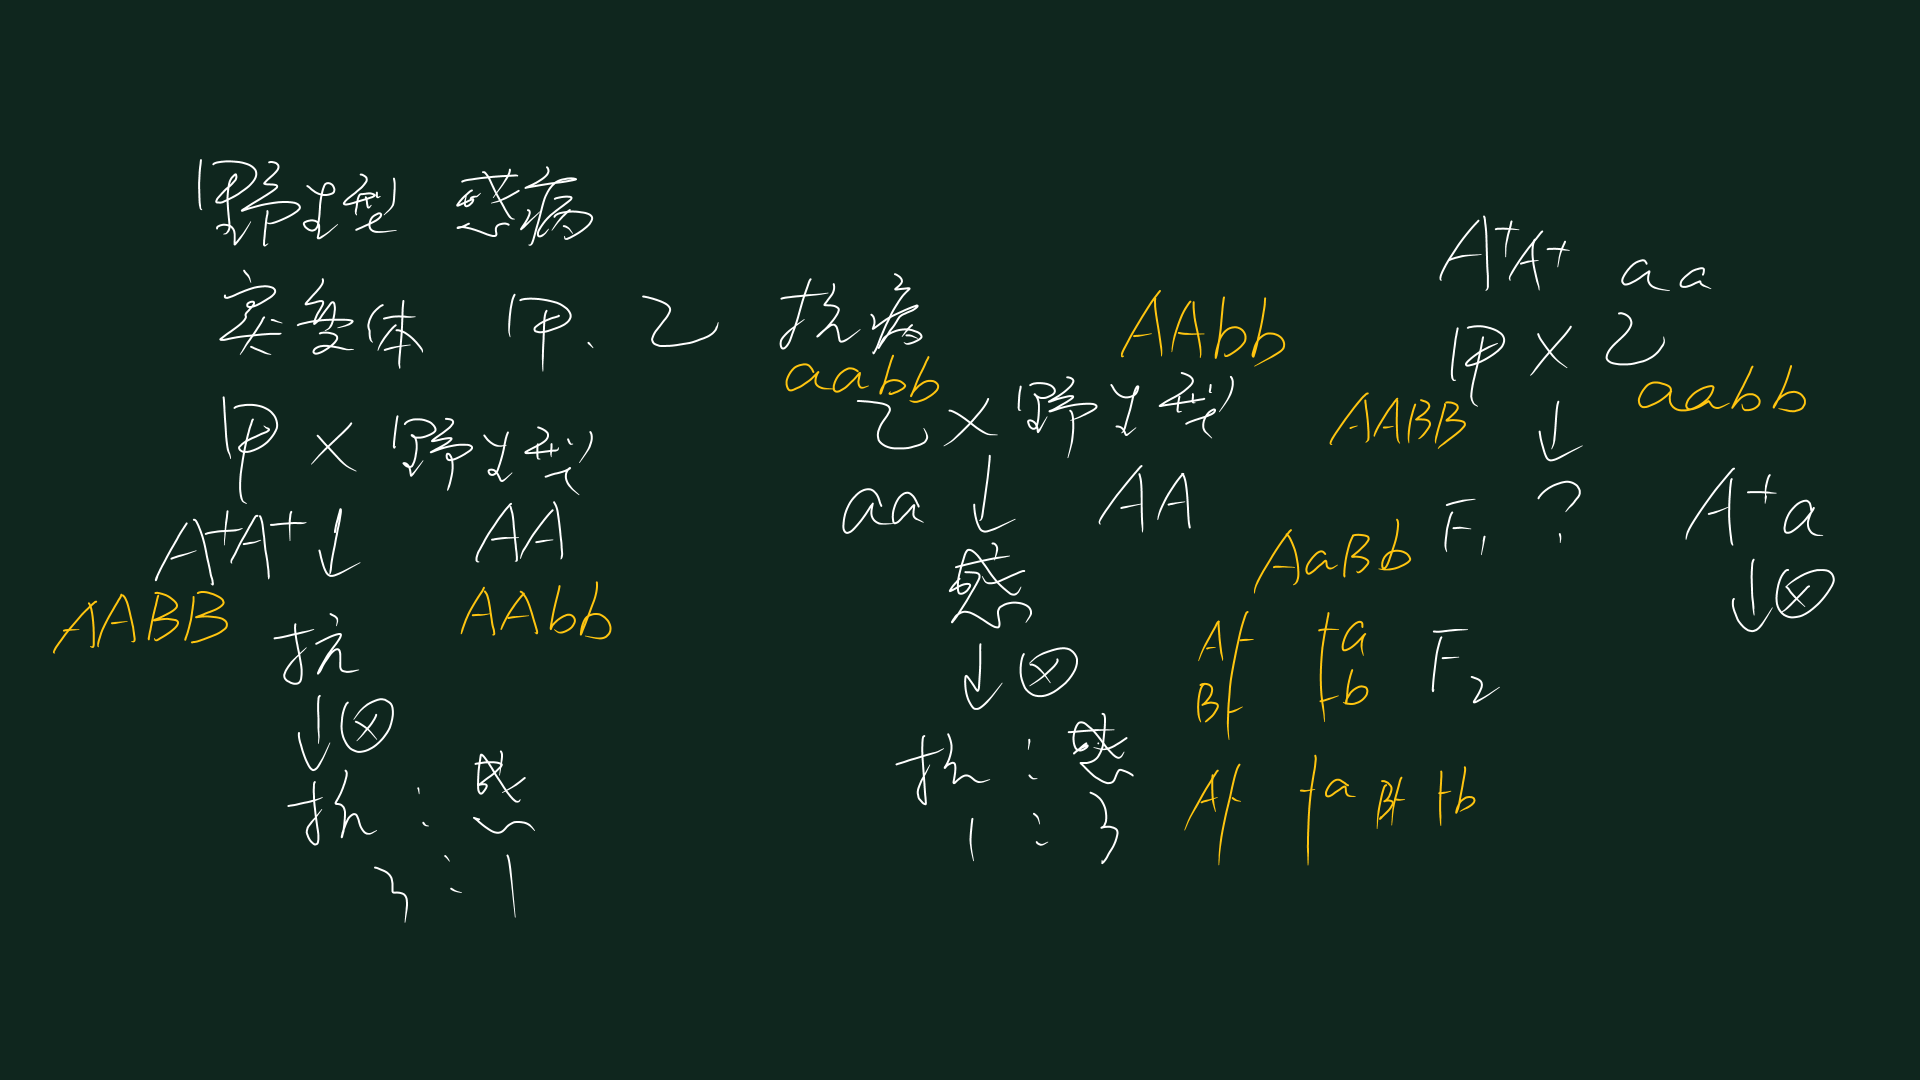 野生型 感病
突变体 甲、乙 抗病
甲 × 野生型
A⁺A⁺ ↓ AA
AABB AAbb
抗
↓ ⊗
抗 : 感
3 : 1
aabb AAbb
乙 × 野生型
aa ↓ AA
感
↓ ⊗
抗 : 感
1 : 3
A⁺A⁺ aa
甲 × 乙
AABB ↓ aabb
AaBb F₁ ? A⁺a
↓ ⊗
A a
B b
F₂
A a B b